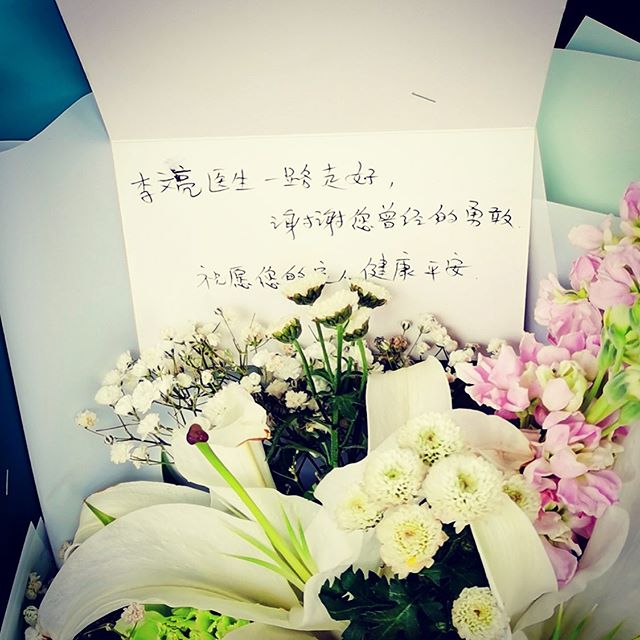 李文亮医生一路走好，
谢谢您曾经的勇敢.
祝愿您的家人健康平安.